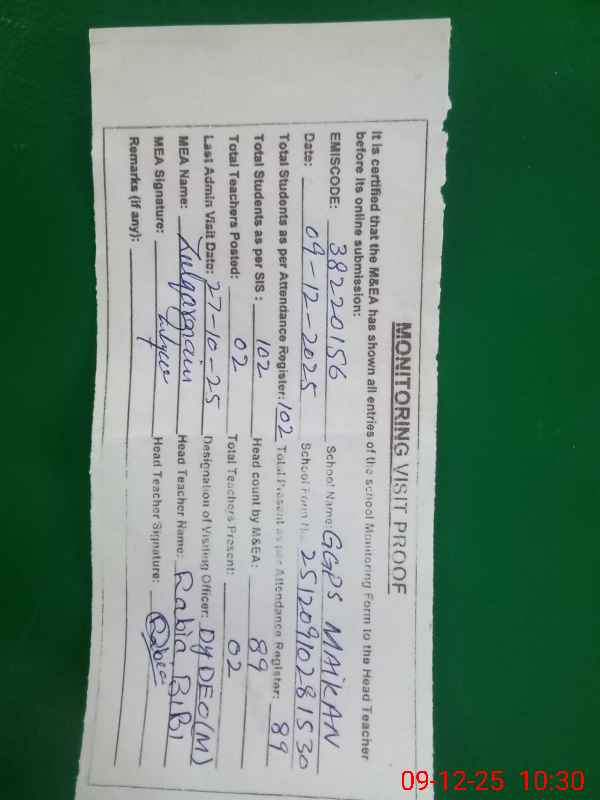 MONITORING VISIT PROOF
It is certified that the M&EA has shown all entries of the school Monitoring Form to the Head Teacher
before its online submission:
EMISCODE: 38220156 School Name: GGPS MAIKAN
Date: 09-12-2025 School Form No. 25120910281530
Total Students as per Attendance Register: 102 Total Present as per Attendance Register: 89
Total Students as per SIS: 102 Head count by M&EA: 89
Total Teachers Posted: 02 Total Teachers Present: 02
Last Admin Visit Date: 27-10-25 Designation of Visiting Officer: Dy DEO(M)
MEA Name: Zulqarnain Head Teacher Name: Rabia BiBi
MEA Signature: Head Teacher Signature: Rabia
Remarks (if any):
09-12-25 10:30